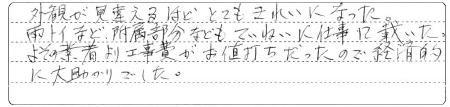 外観が見違えるほど とてもきれいになった。
雨トイなど、附属部分などもていねいに仕事して戴いた。
よその業者より工事費がお値打ちだったので経済的
に大助かりでした。